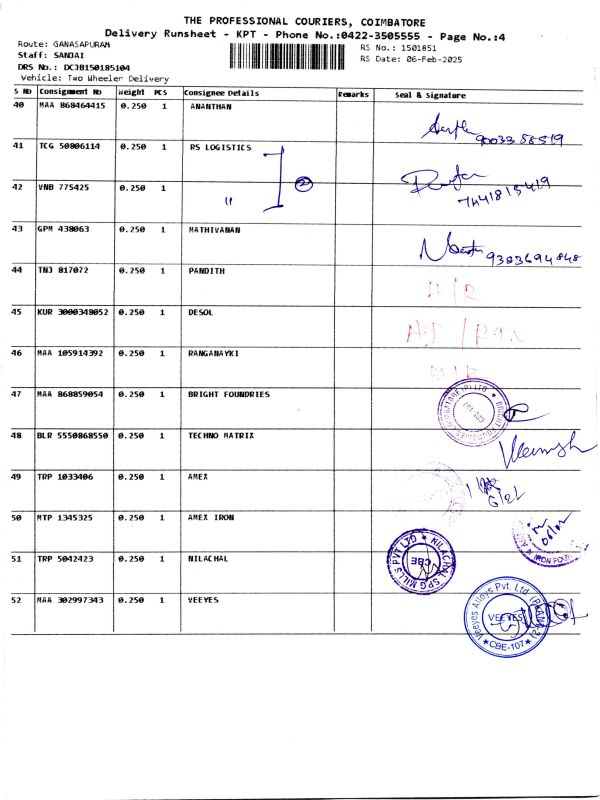 THE PROFESSIONAL COURIERS, COIMBATORE
Delivery Runsheet - KPT - Phone No.:0422-3505555 - Page No.:4
Route: GANASAPURAM
RS No.: 1501851
Staff: SANJAI
RS Date: 06-Feb-2025
DRS No.: DCJB150185104
Vehicle: Two Wheeler Delivery
S NO Consignment NO Weight PCS Consignee Details Remarks Seal & Signature
40 MAA 868464415 0.250 1 ANANTHAN
9003358519
41 TCG 50806114 0.250 1 RS LOGISTICS
2
42 VNB 775425 0.250 1 "
7441815419
43 GPM 438063 0.250 1 MATHIVANAN
9383694848
44 TNJ 817072 0.250 1 PANDITH
45 KUR 3000348052 0.250 1 DESOL
46 MAA 105914392 0.250 1 RANGANAYKI
47 MAA 868859054 0.250 1 BRIGHT FOUNDRIES
48 BLR 5550868550 0.250 1 TECHNO MATRIX
49 TRP 1033406 0.250 1 AMEX
6/2/
50 MTP 1345325 0.250 1 AMEX IRON
51 TRP 5042423 0.250 1 NILACHAL
NILACHAL SPG MILLS PVT LTD
CBE
52 MAA 302997343 0.250 1 VEEYES
Veeyes Alloys Pvt. Ltd. (PLANT 2)
VEEYES
CBE-107